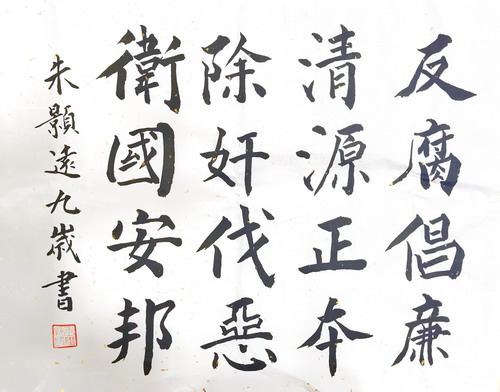 反腐倡廉
清源正本
除奸伐惡
衛國安邦
朱顥遠九歲書